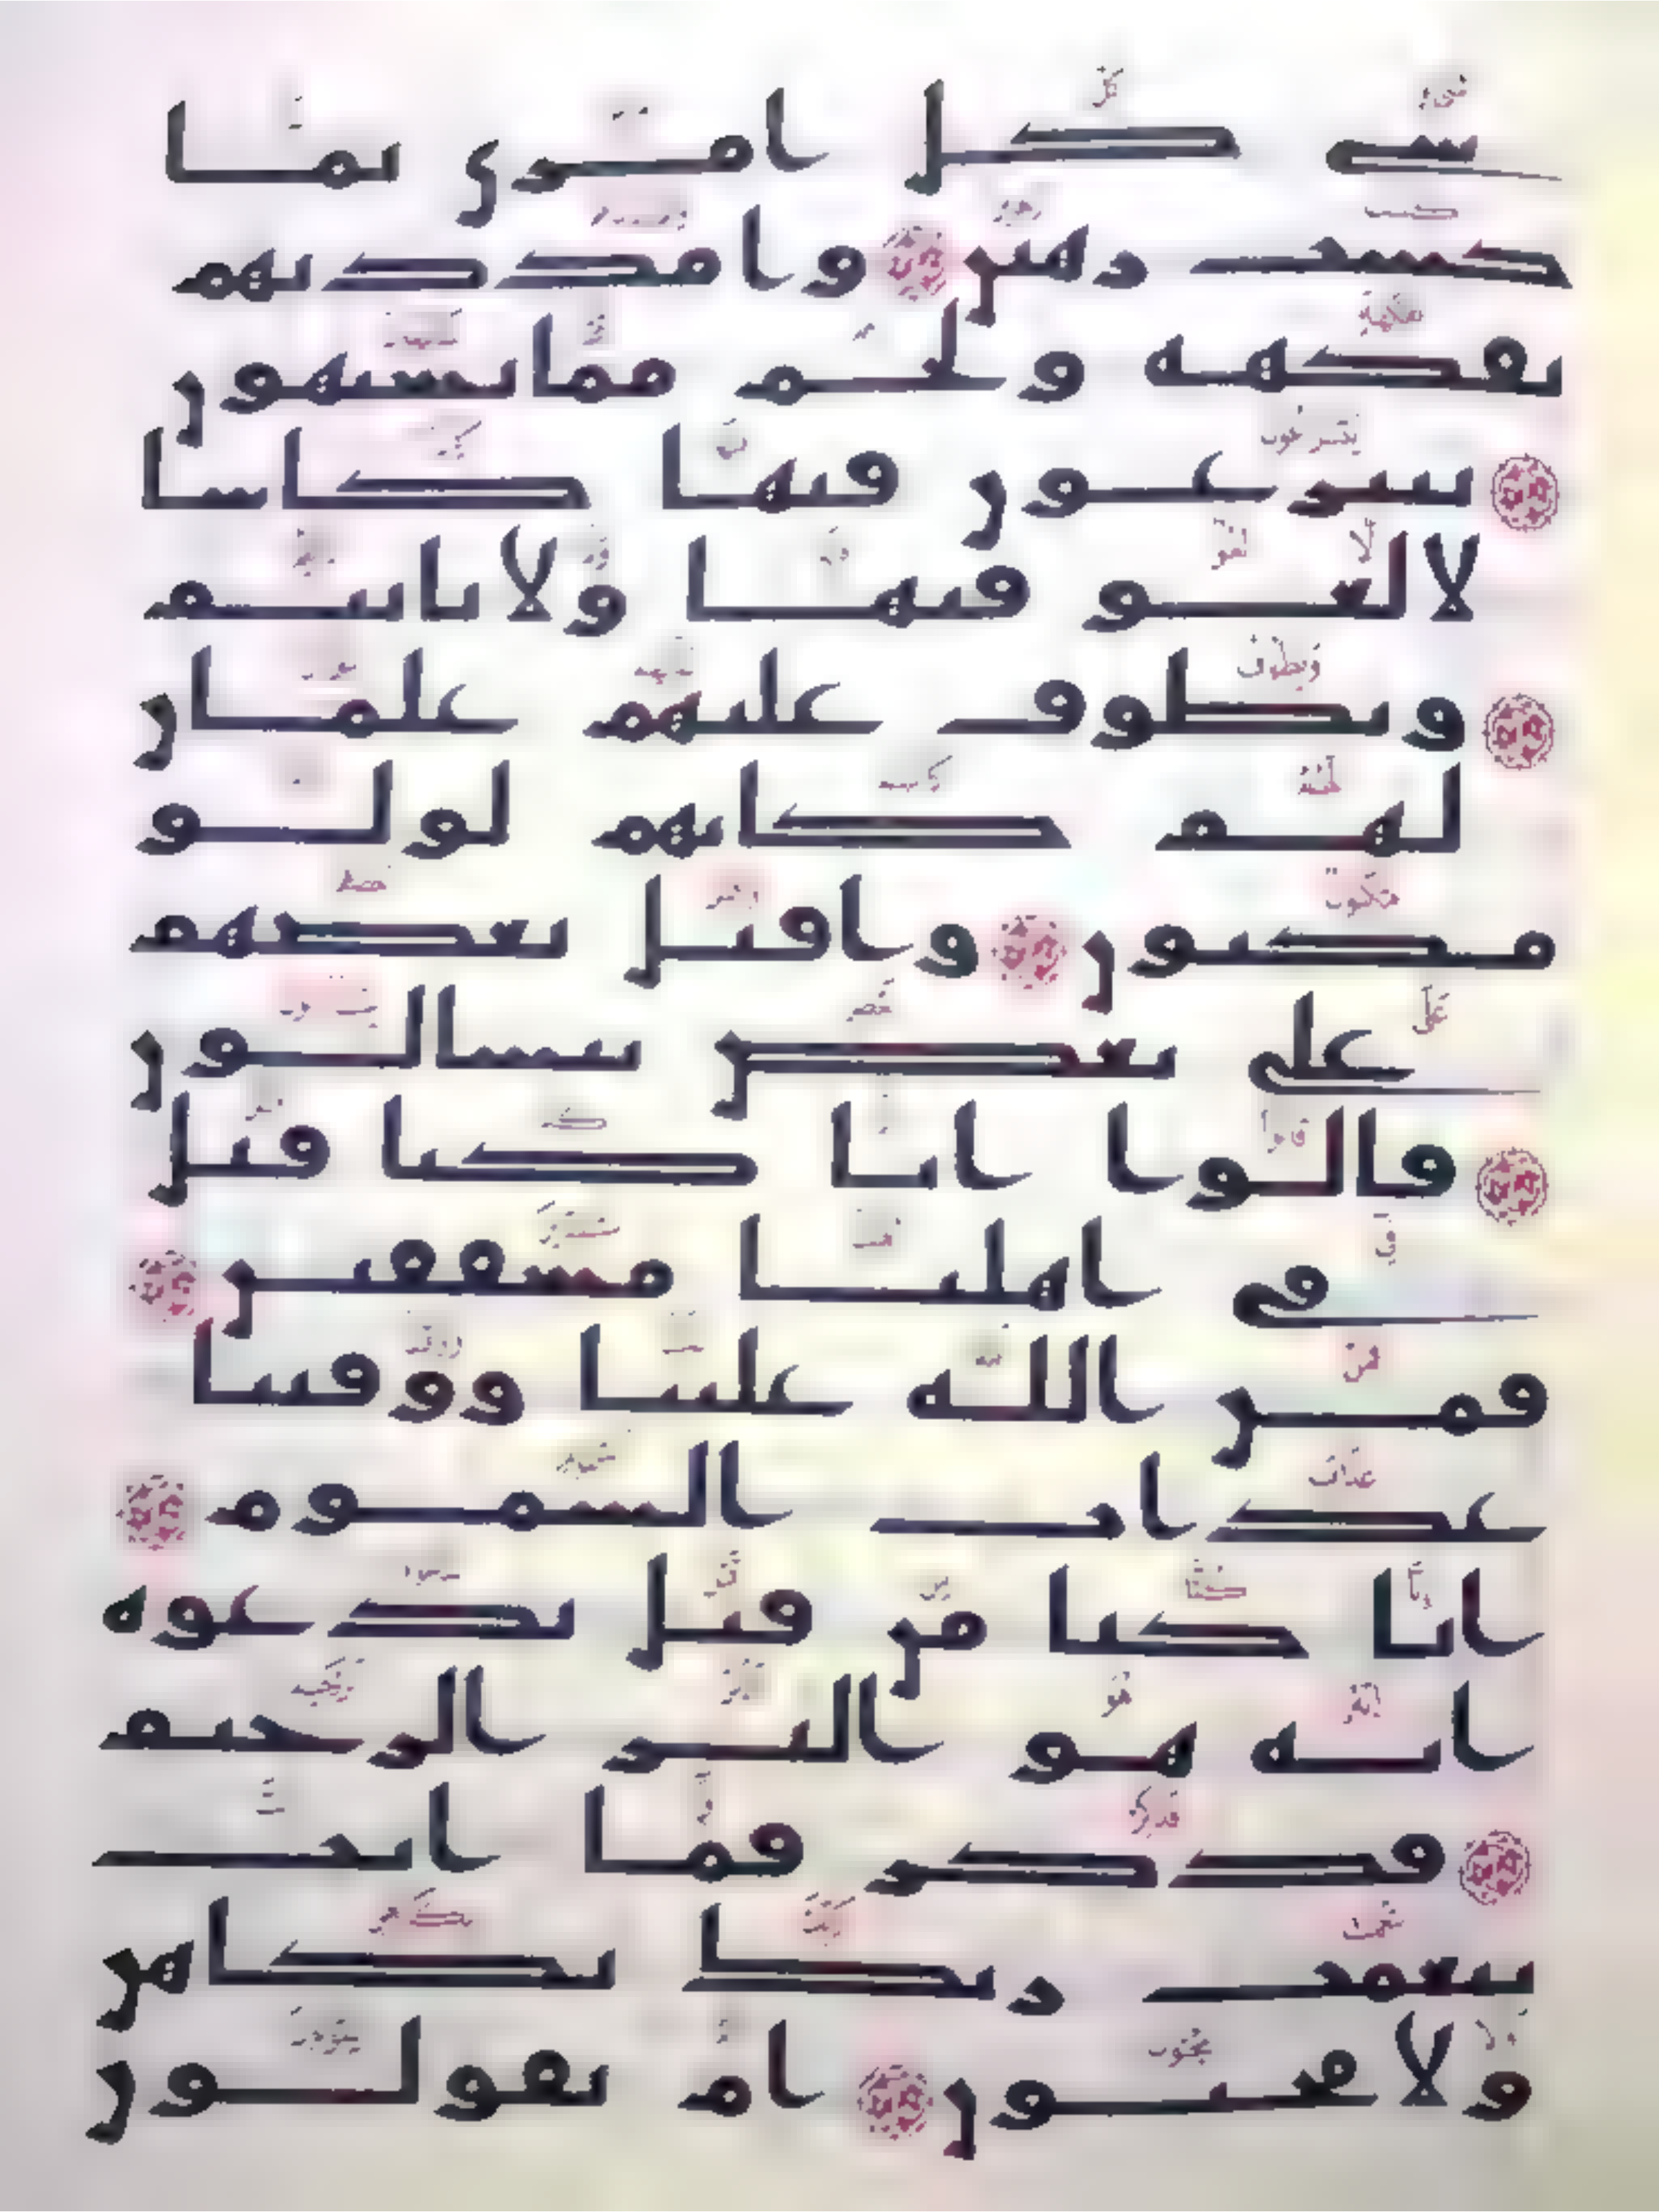 شى كل امرى بما
كسبت رهين وامددنهم
بفكهة ولحم مما يشتهون
يتنزعون فيها كاسا
لا لغو فيها ولا تاثيم
ويطوف عليهم غلمان
لهم كانهم لولو
مكنون واقبل بعضهم
على بعض يتسالون
قالوا انا كنا قبل
فى اهلنا مشفقين
فمن الله علينا ووقنا
عذاب السموم
انا كنا من قبل ندعوه
انه هو البر الرحيم
فذكر فما انت
بنعمت ربك بكاهن
ولا مجنون ام يقولون